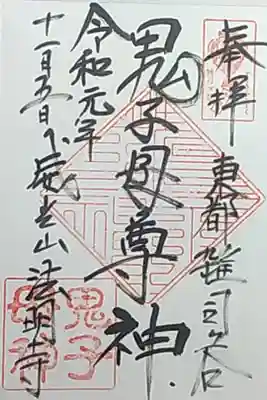 奉拝
東都 雑司谷
鬼子母尊神
令和元年
十一月五日 威光山 法明寺
鬼子
母神